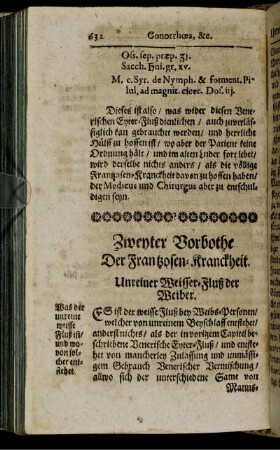 632 Gonorrhœa, &c.
Oss. sep. præp. ʒj.
Sacch. ♄ni. gr. xv.
M. c. Syr. de Nymph. & forment. Pi-
lul, ad magnit. ciceri. Dos. iij.
Dieses ist also / was wider diesen Vene-
rischen Eyter-Fluß dienlichen / auch zuverläs-
siglich kan gebrauchet werden / und herrliche
Hülff zu hoffen ist / wo aber der Patient keine
Ordnung hält / und im alten Luder fort lebet /
wird derselbe nichts anders / als die völlige
Frantzosen-Kranckheit davon zu hoffen haben /
der Medicus und Chirurgus aber zu entschul-
digen seyn.
Zweyter Vorbothe
Der Frantzosen-Kranckheit.
Unreiner Weisser-Fluß der
Weiber.
Was der
unreine
weisse
Fluß ist /
und wo-
von sol-
cher ent-
stehet.
ES ist der weisse Fluß bey Weibs-Personen /
welcher von unreinem Beyschlaff entstehet /
anderst nichts / als der in vorigem Capitel be-
schriebene Venerische Eyter-Fluß / und entste-
het von mancherley Zulassung und unmässi-
gem Gebrauch Venerischer Vermischung /
allwo sich der unterschiedene Same von
Manns-